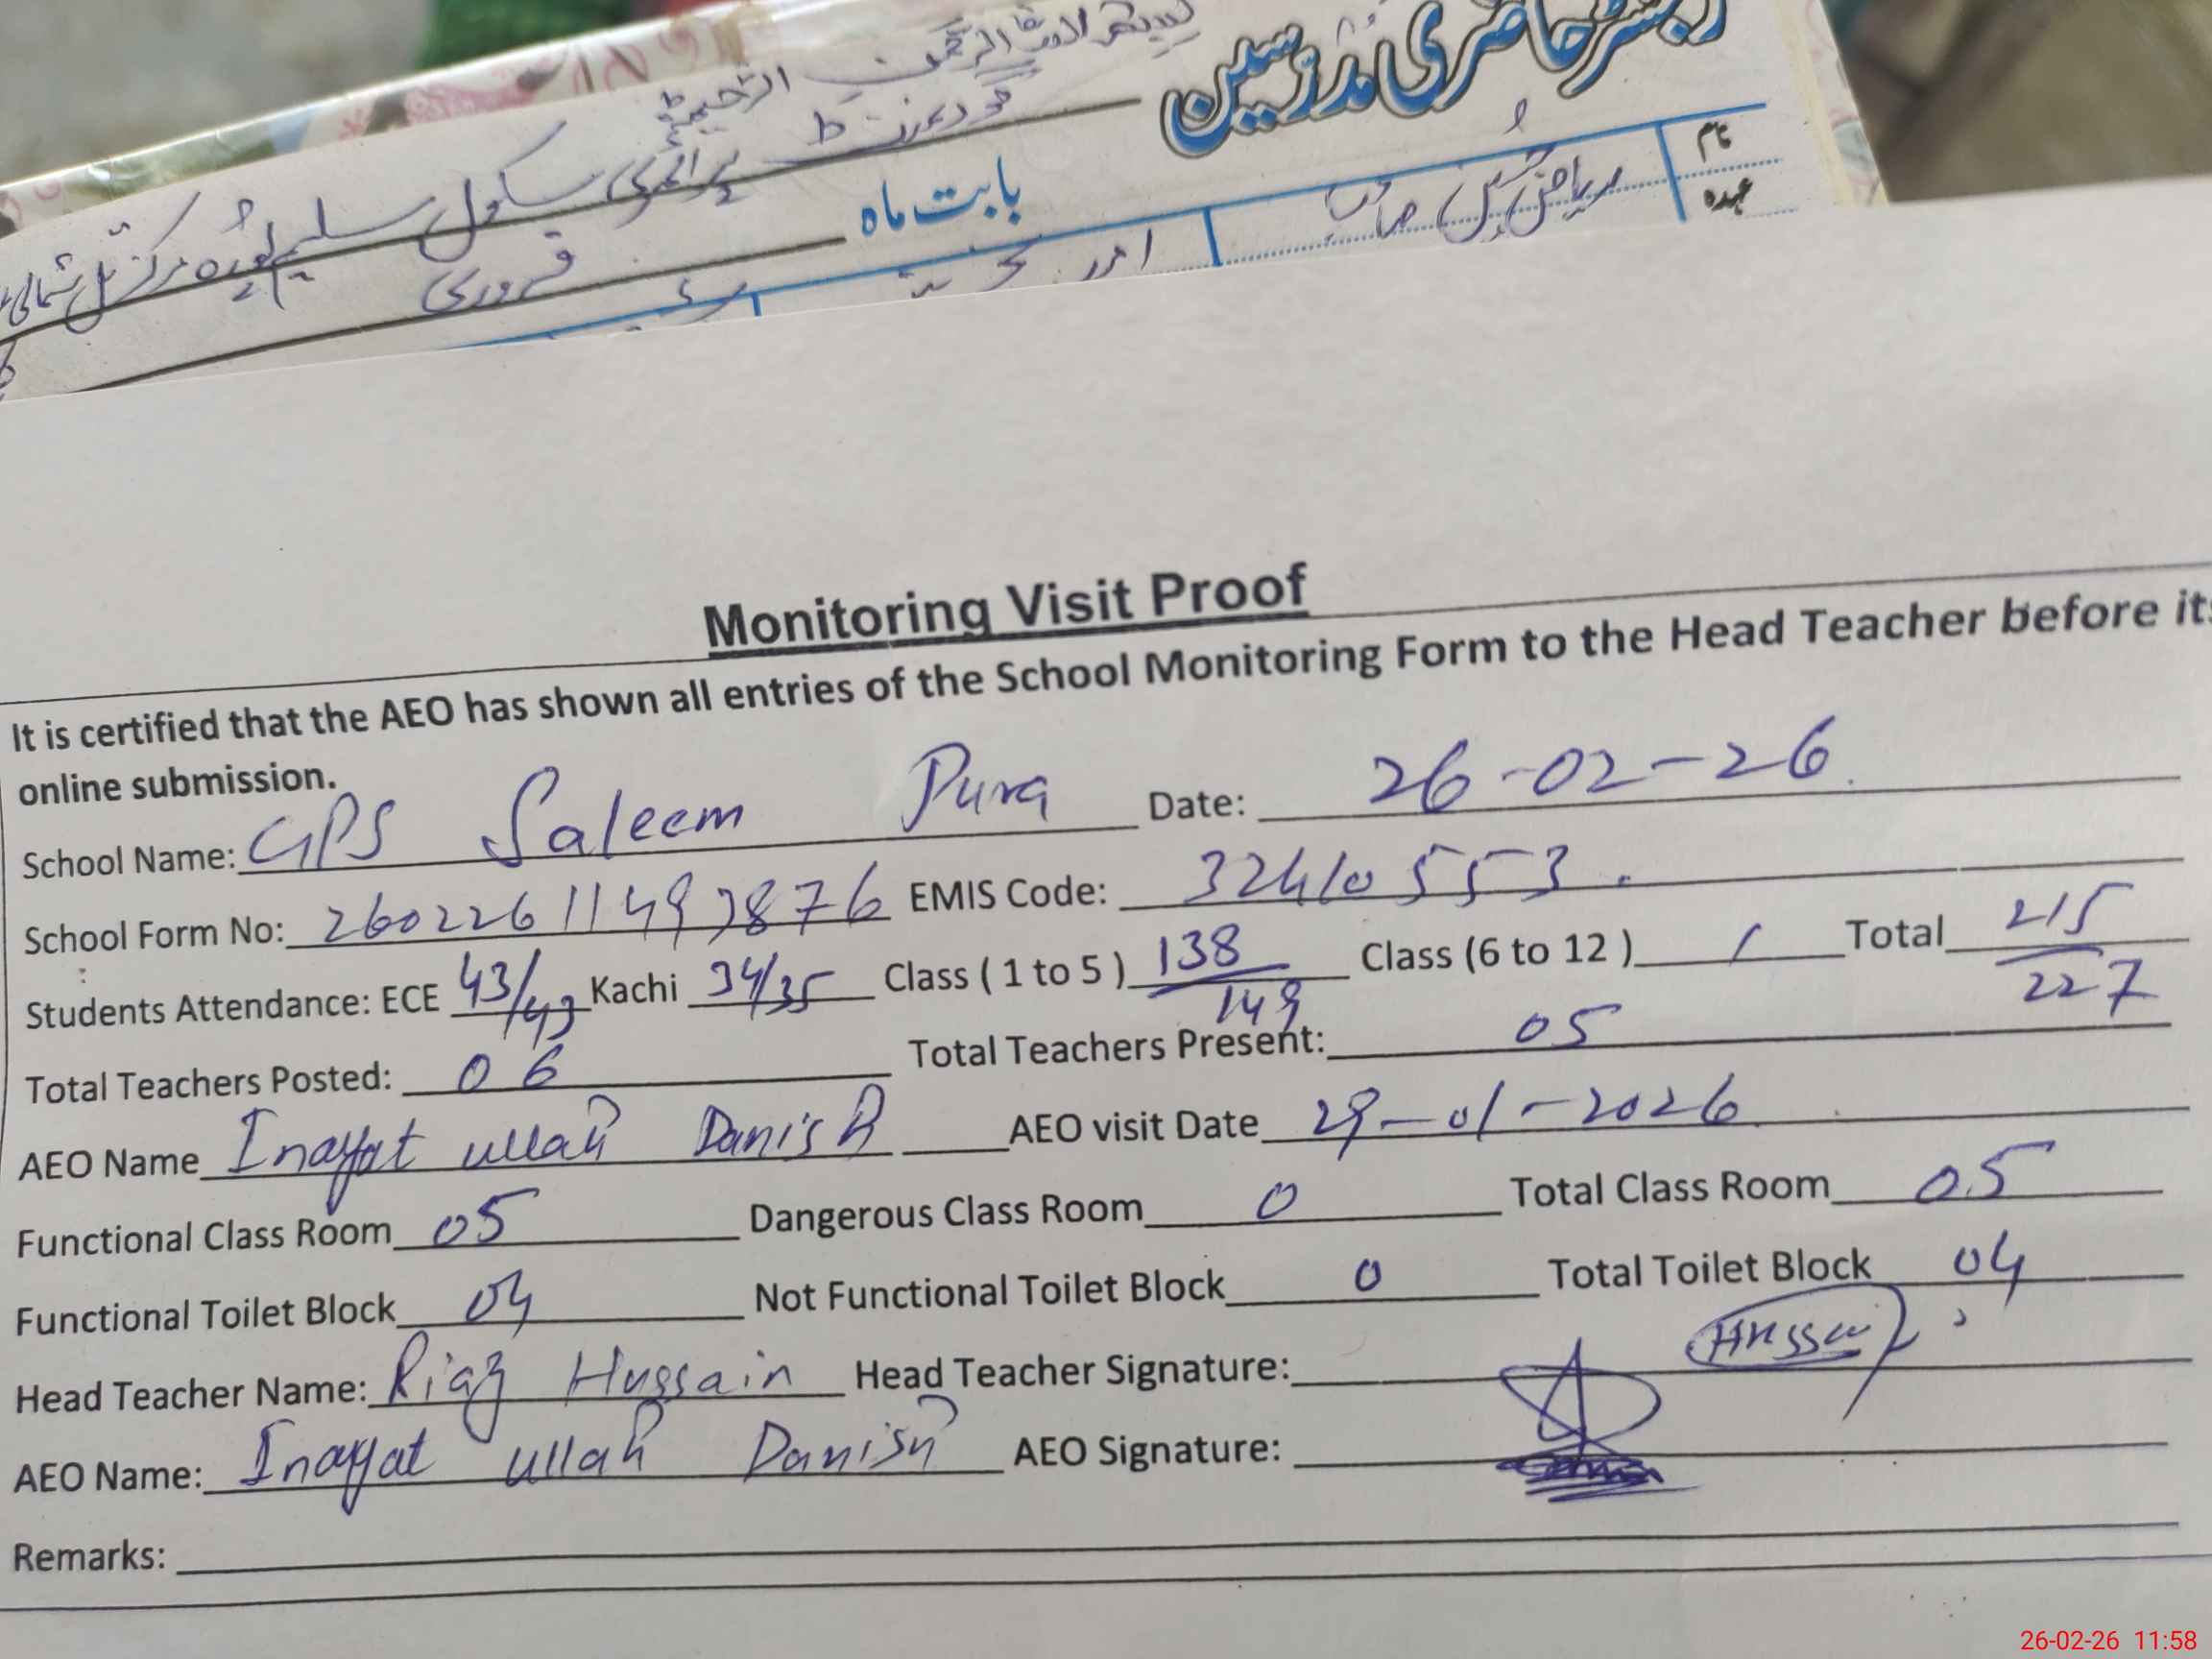 رجسٹر حاضری مدرسین
بسم اللہ الرحمن الرحیم
گورنمنٹ پرائمری سکول سلیم پورہ مرکز شمالی
بابت ماہ فروری
نام ریاض حسین صاحب
عہدہ
Monitoring Visit Proof
It is certified that the AEO has shown all entries of the School Monitoring Form to the Head Teacher before its
online submission.
School Name: GPS Saleem Pura Date: 26-02-26
School Form No: 26022611493876 EMIS Code: 32410553
Students Attendance: ECE 43/43 Kachi 34/35 Class ( 1 to 5 ) 138/149 Class (6 to 12 ) / Total 215/227
Total Teachers Posted: 06 Total Teachers Present: 05
AEO Name Inayat ullah Danish AEO visit Date 29-01-2026
Functional Class Room 05 Dangerous Class Room 0 Total Class Room 05
Functional Toilet Block 04 Not Functional Toilet Block 0 Total Toilet Block 04
Head Teacher Name: Riaz Hussain Head Teacher Signature: Hussain
AEO Name: Inayat ullah Danish AEO Signature:
Remarks:
26-02-26 11:58